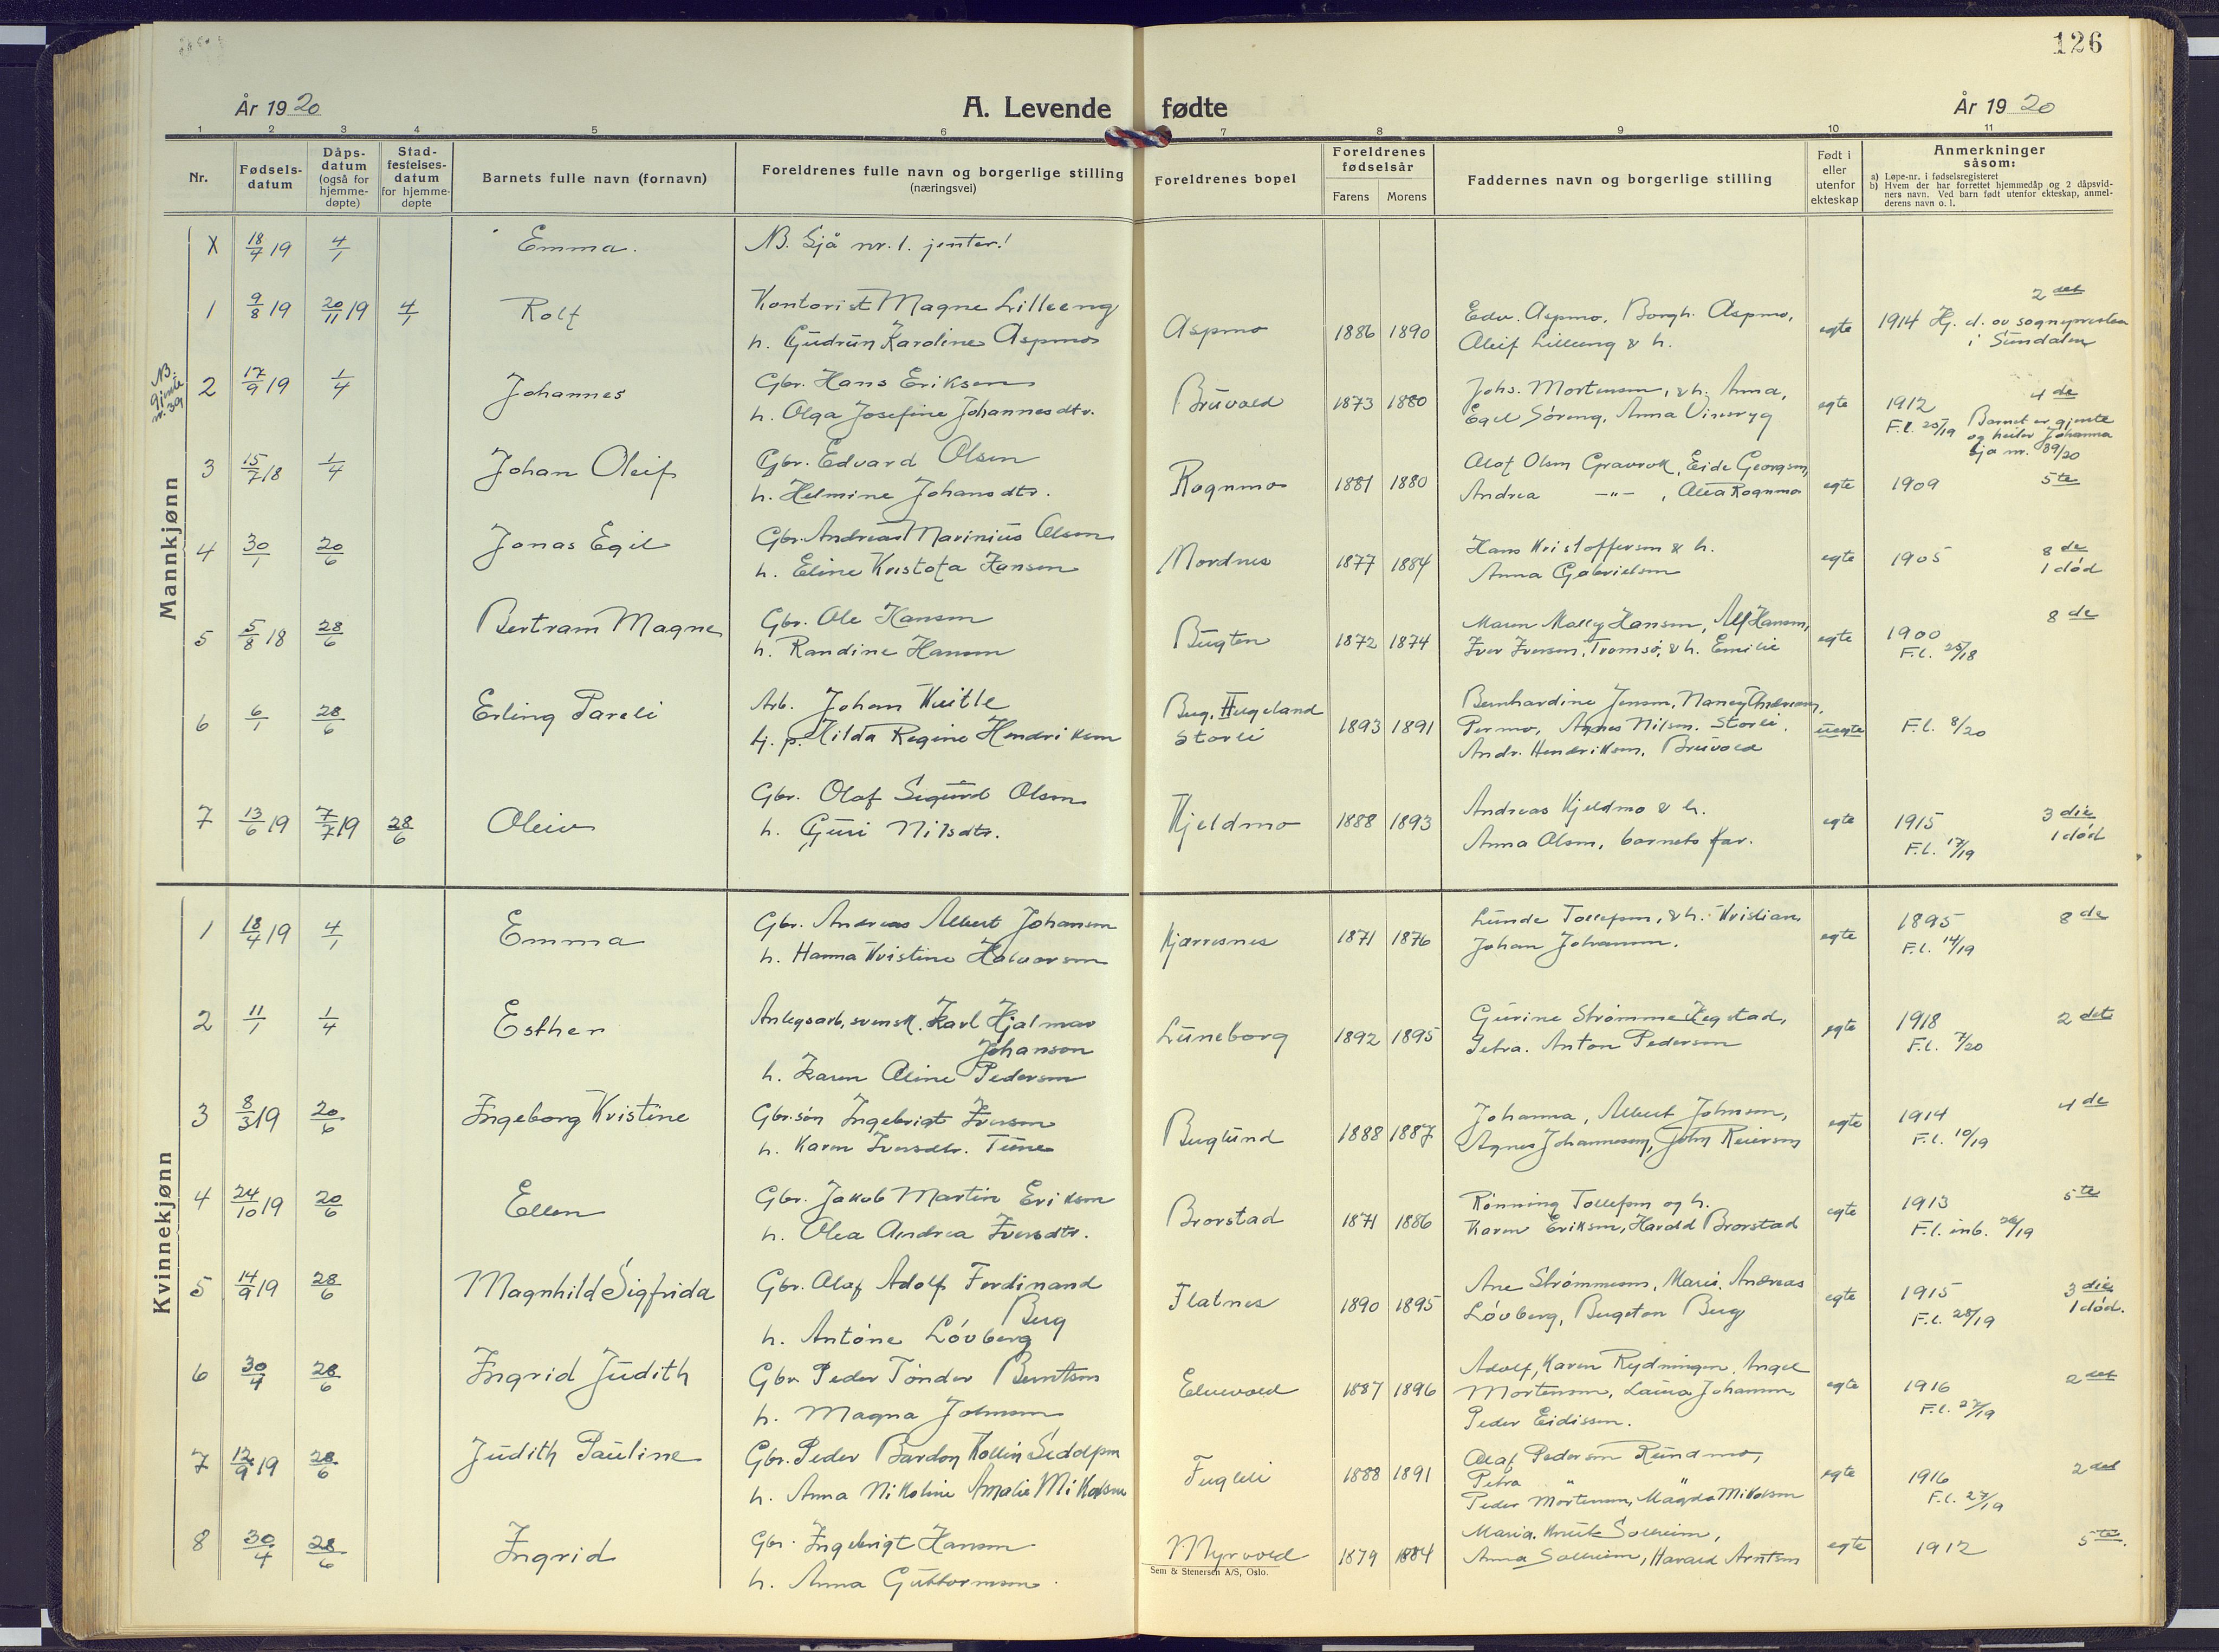 126
År 1920
A. Levende fødte
År 1920
1 2 3 4 5 6 7 8 9 10 11
Nr.
Fødsels-
datum
Dåps-
datum
(også for
hjemme-
døpte)
Stad-
festelses-
datum
for hjemme-
døpte
Barnets fulle navn (fornavn)
Foreldrenes fulle navn og borgerlige stilling
(næringsvei)
Foreldrenes bopel
Foreldrenes
fødselsår
Farens Morens
Faddernes navn og borgerlige stilling
Født i
eller
utenfor
ekteskap
Anmerkninger
såsom:
a) Løpe-nr. i fødselsregisteret
b) Hvem der har forrettet hjemmedåp og 2 dåpsvid-
ners navn. Ved barn født utenfor ekteskap, anmel-
derens navn o. l.
Mannkjønn
X 18/4 19 4/1 Emma. NB. Sjå nr. 1. jenter!
1 9/8 19 20/11 19 4/1 Rolf Kontorist Magne Lilleeng
h. Gudrun Karoline Aspmo
Aspmo 1886 1890 Edv. Aspmo, Borgh. Aspmo,
Aleif Lilleeng & h.
egte 1914 Hj. d. av sognepresten
i Sundalen
2 det
NB.
gjente
nr. 39
2 17/9 19 1/4 Johannes Gbr. Hans Eriksen
h. Olga Josefine Johannesdtr.
Bruvold 1873 1880 Johs. Mortensen, & h. Anna,
Egil Søreng, Anna
egte 1912 4 de
F.l. 25/19 Barnet er gjente
og heiter Johanna
sja nr. 39/20
3 15/7 18 1/4 Johan Oleif Gbr. Edvard Olsen
h. Helmine Johansdtr.
Rognmo 1881 1880 Olaf Olsen Gravrok, Eide Georgsen,
Andrea -"-, Alea Rognmo
egte 1909 5te
4 30/1 20/6 Jonas Egil Gbr. Andreas Marinius Olsen
h. Eline Kristofa Hansen
Nordnes 1877 1884 Hans Kristoffersen & h.
Anna Gabrielsen
egte 1905 8 de
1 død
5 5/8 18 28/6 Bertram Magne Gbr. Ole Hansen
h. Randine Hansen
Bugten 1872 1874 Maren Mally Hansen, Alf Hansen,
Iver Iversen, Tromsø, & h. Emilie
egte 1900 8 de
F.l. 25/18
6 6/1 28/6 Erling Pareli Arb. Johan Kuitle
tj. p. Hilda Regine Hendriksen
Berg, Hegeland
Storli
1893 1891 Bernhardine Jensen, Nancy Andreasen,
Permo, Agnes Nilsen, Storli,
Andr. Hendriksen, Bruvold
uegte F.l. 8/20
7 13/6 19 7/7 19 28/6 Oleiv Gbr. Olaf Sigurd Olsen
h. Guri Nilsdtr.
Kjeldmo 1888 1893 Andreas Kjeldmo & h.
Anna Olsen, barnets far.
egte 1915 3 die
F.l. 17/19 1 død
Kvinnekjønn
1 18/4 19 4/1 Emma Gbr. Andreas Albert Johansen
h. Hanna Kristine Halvorsen
Kjærresnes 1871 1876 Lunde Tollefsen, & h. Kristiane,
Johan Johansen.
egte 1895 8 de
F.l. 14/19
2 11/1 1/4 Esther Anlegsarb, svensk. Karl Hjalmar
Johanson
h. Karen Aline Pedersen
Luneborg 1892 1895 Gurine Strømme Hegstad,
Petra. Anton Pedersen
egte 1918 2 det
F.l. 7/20
3 8/3 19 20/6 Ingeborg Kristine Gbr.søn Ingebrigt Iversen
h. Karen Iversdtr. Tune
Berglund 1888 1887 Johanna, Albert Johnsen,
Agnes Johannesen, John Reiersen
egte 1914 4 de
F.l. 10/19
4 24/10 19 20/6 Ellen Gbr. Jakob Martin Eriksen
h. Olea Andrea Iversdtr.
Brorstad 1871 1886 Rønning Tollefsen og h.
Karen Eriksen, Harald Brorstad
egte 1913 5te
F.l. inb. 26/19
5 14/9 19 28/6 Magnhild Sigfrida Gbr. Olaf Adolf Ferdinand
Berg
h. Antone Løvberg
Flatnes 1890 1895 Ane Strømmesen, Marie, Andreas
Løvberg, Bergeton Berg
egte 1915 3 die
F.l. 28/19 1 død.
6 30/4 28/6 Ingrid Judith Gbr. Peder Tønder Berntsen
h. Magna Johnsen
Elvevold 1887 1896 Adolf, Karen Rydningen, Angel
Mortensen, Laura Johansen,
Peder Eidissen.
egte 1916 2 det
F.l. 27/19
7 12/9 19 28/6 Judith Pauline Gbr. Peder Bardon Kollin Sedolfsen
h. Anna Nikoline Amalie Mikalsen
Fugleli 1888 1891 Olaf Pedersen Rundmo,
Petra " "
Peder Mortensen, Magda Mikalsen
egte 1916 2 det
F.l. 27/19
8 30/4 28/6 Ingrid Gbr. Ingebrigt Hansen
h. Anna Guttormsen.
Myrvold 1879 1884 Maria. Knut Solheim,
Anna Solheim, Harald Arntsen
egte 1912 5te.
Sem & Stenersen A/S, Oslo.